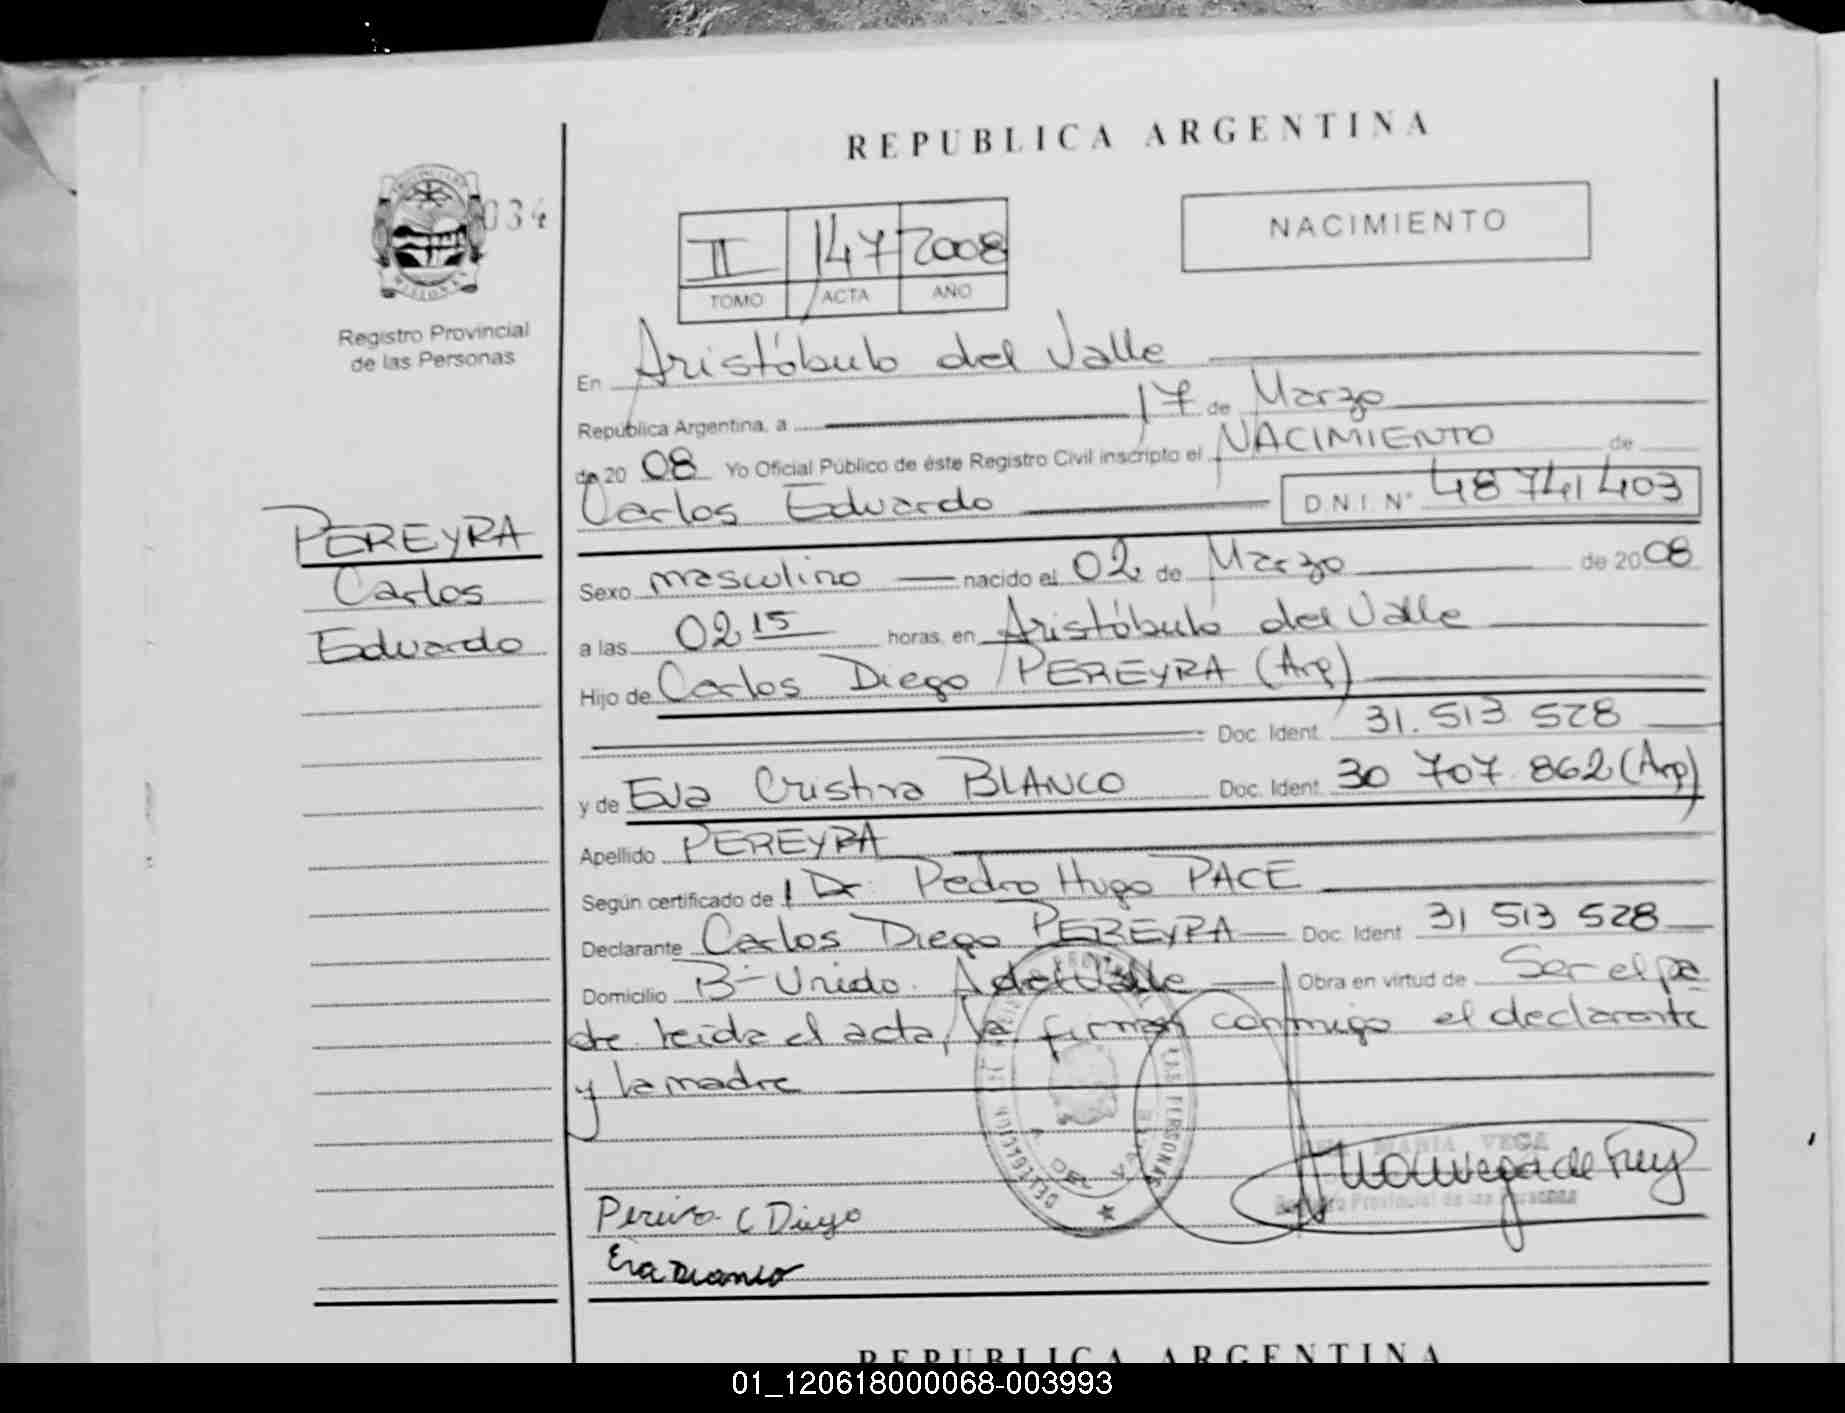 REPUBLICA ARGENTINA
034
NACIMIENTO
II 147 2008
TOMO ACTA AÑO
Registro Provincial
de las Personas
En Aristóbulo del Valle
República Argentina, a 17 de Marzo
de 20 08 Yo Oficial Público de éste Registro Civil inscripto el NACIMIENTO de
Carlos Eduardo D.N.I. N° 48741403
PEREYRA
Carlos
Eduardo
Sexo masculino nacido el 02 de Marzo de 2008
a las 02 15 horas, en Aristóbulo del Valle
Hijo de Carlos Diego PEREYRA (Arg)
Doc. Ident. 31.513 528
y de Eva Cristina BLANCO Doc. Ident. 30 707.862 (Arg)
Apellido PEREYRA
Según certificado de Dr. Pedro Hugo PACE
Declarante Carlos Diego PEREYRA Doc. Ident 31 513 528
Domicilio B° Unido. A del Valle Obra en virtud de Ser el pa
dre leida el acta, la firman conmigo el declarante
y la madre
LAS PERSONAS
MARIA VEGA
Registro Provincial de las Personas
C Diego
Eva Blanco
REPUBLICA ARGENTINA
01_120618000068-003993